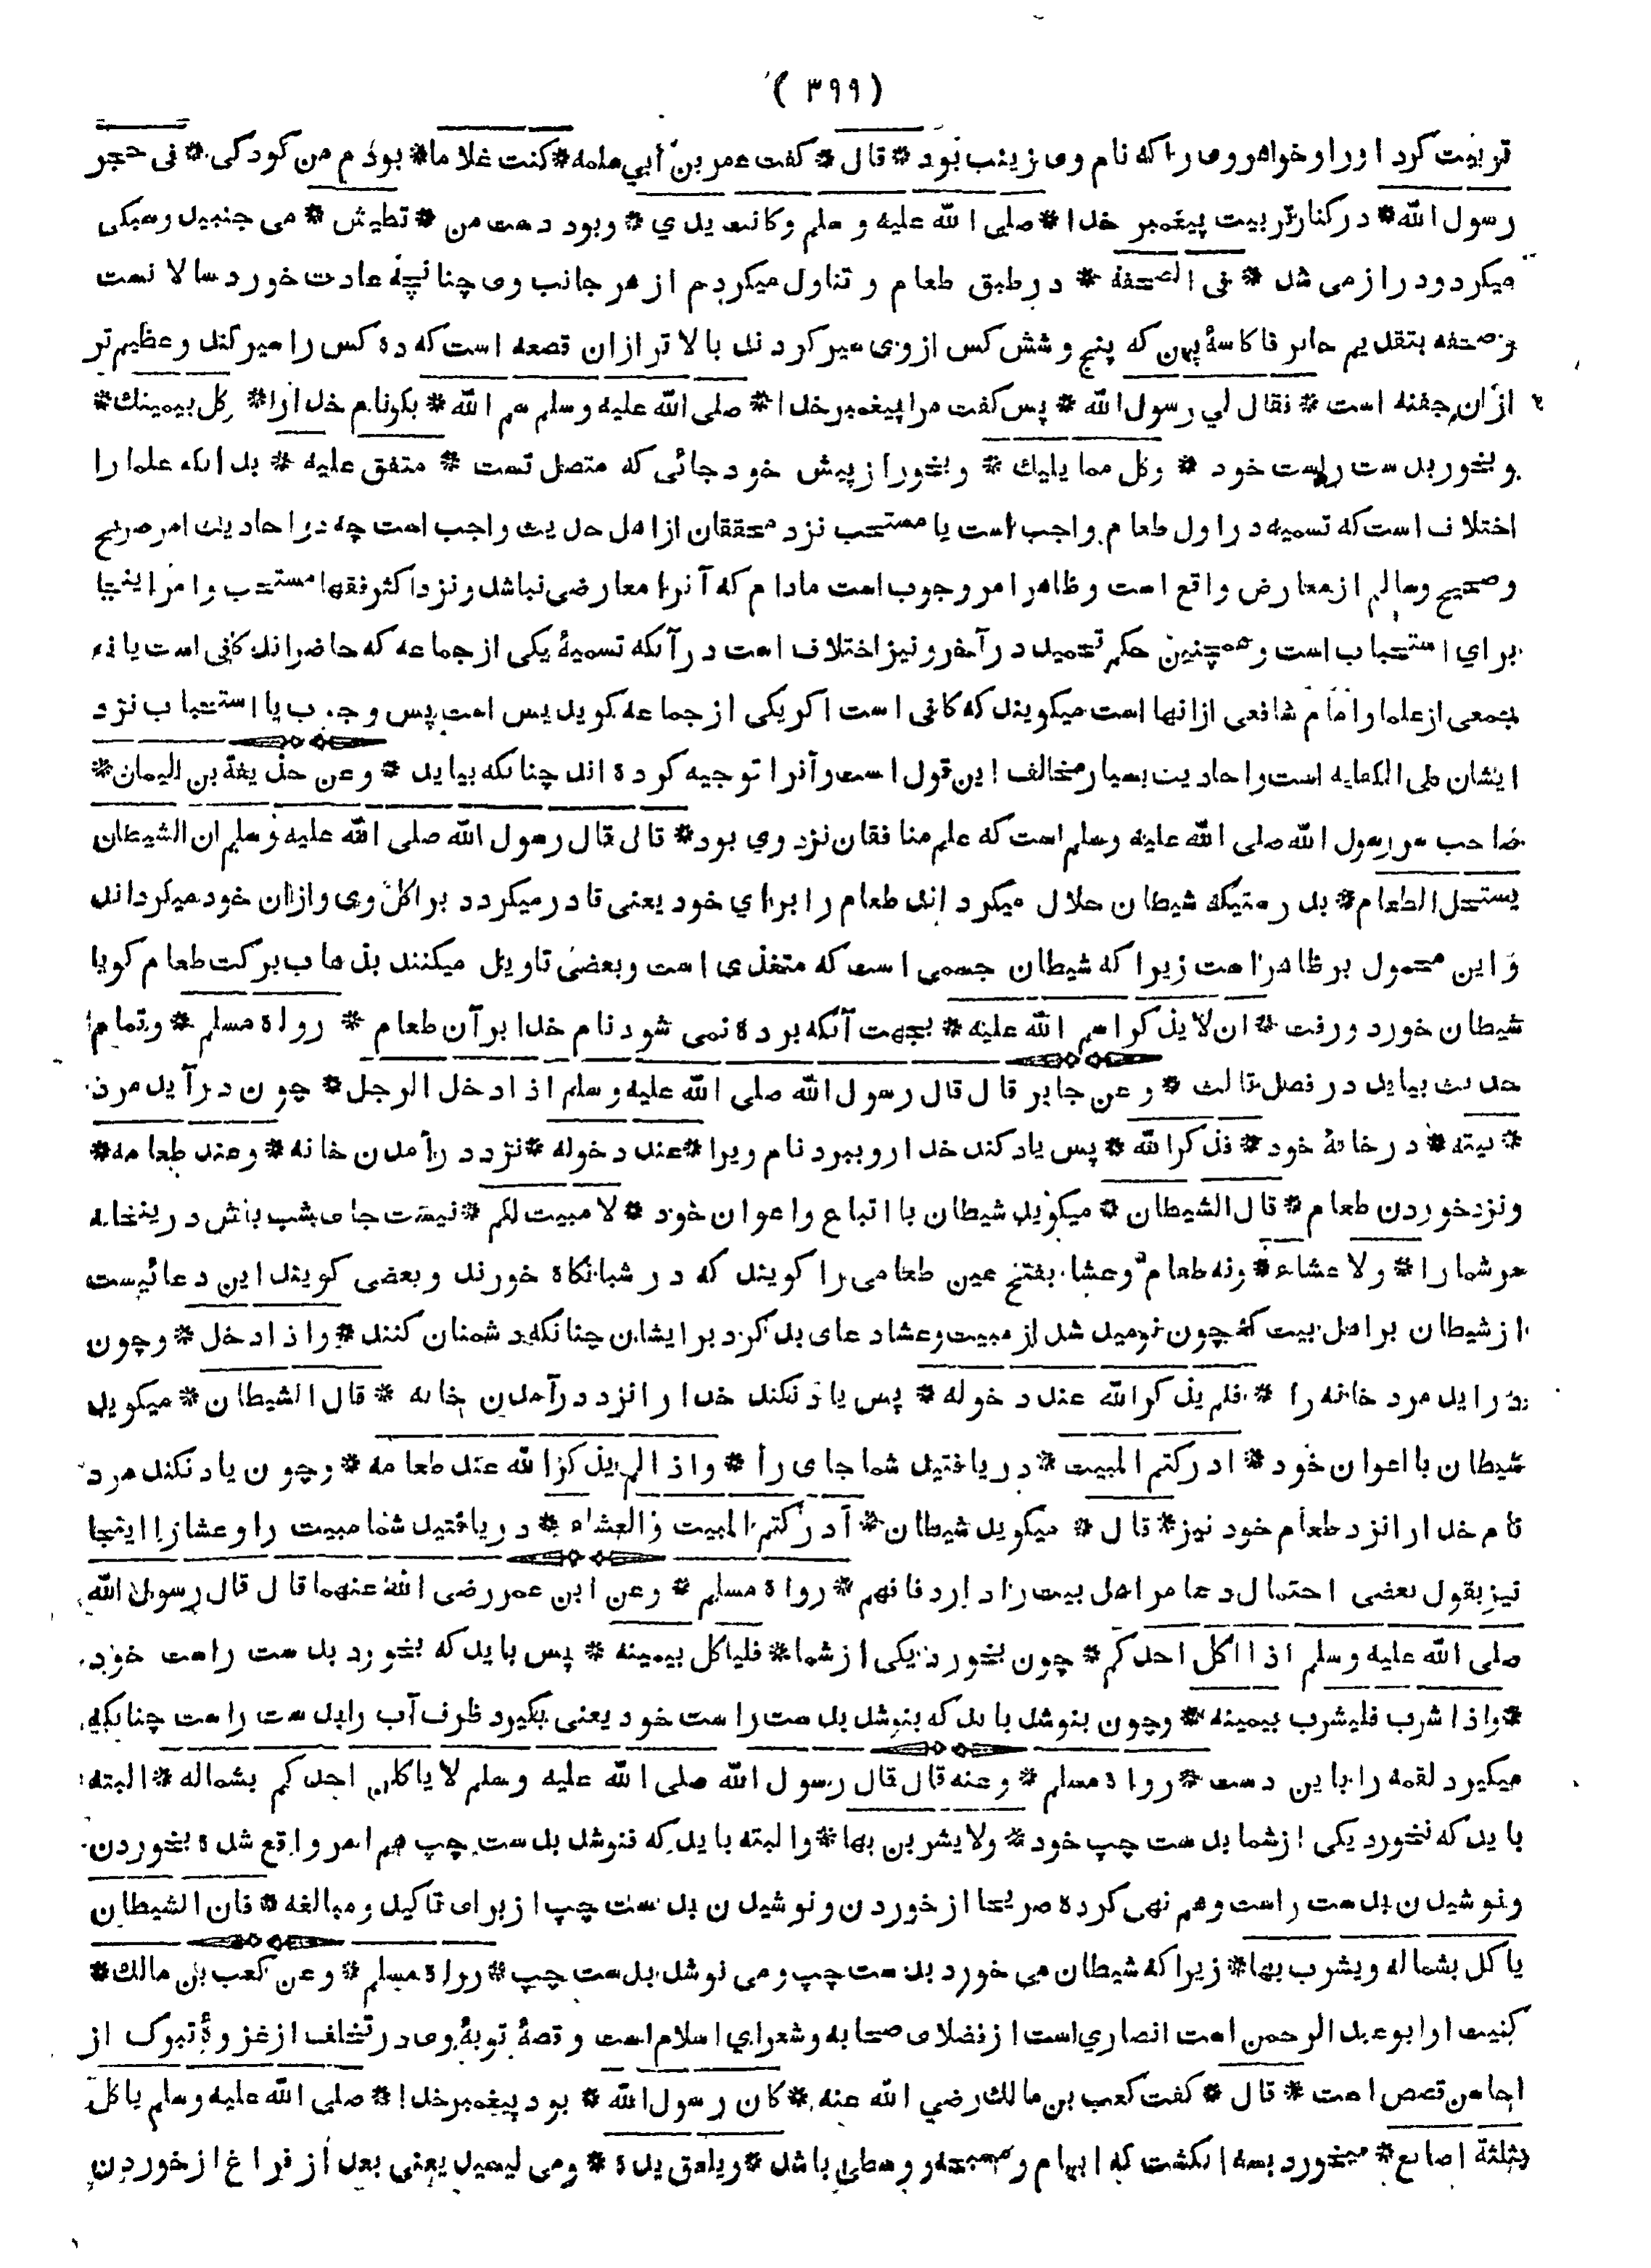 ( ٣٩٩ )
تربیت کرد اورا و خواهر وی را که نام وی زینب بود * قال * گفت عمر بن أبي سلمه * کنت غلاما * بودم من کودکی * فی حجر
رسول الله * در کنار تربیت پیغمبر خدا * صلی الله علیه و سلم و کانت یدي * و بود دست من * تطیش * می جنبید و سبکی
میکرد و دراز می شد * فی الصحفه * در طبق طعام و تناول میکردم از هر جانب وی چنانچه عادت خورد سالانست
و صحفه بتقدیم حا بر فا کاسهٔ پهن که پنج و شش کس ازوی سیر کردند بالاتر ازان قصعه است که ده کس را سیر کند و عظیم تر
ازان جفنه است * فقال لي رسول الله * پس گفت مرا پیغمبر خدا * صلی الله علیه و سلم سم الله * بکو نام خدا را * کل بیمینك *
و بخور بدست راست خود * و کل مما یلیك * و بخور از پیش خود جائی که متصل تست * متفق علیه * بدانکه علما را
اختلاف است که تسمیه در اول طعام واجب است یا مستحب نزد محققان از اهل حدیث واجب است چه در احادیث امر صریح
و صحیح و سالم از معارض واقع است و ظاهر امر وجوب است مادام که آنرا معارضی نباشد و نزد اکثر فقها مستحب و امر اینجا
برای استحباب است و همچنین حکم تحمید در آخر و نیز اختلاف است در آنکه تسمیهٔ یکی از جماعه که حاضر اند کافی است یا نه
جمعی از علما و امام شافعی ازانها است میکویند که کافی است اکر یکی از جماعه کوید بس است پس وجوب یا استحباب نزد
ایشان علی الکفایه است و احادیث بسیار مخالف این قول است و آنرا توجیه کرده اند چنانکه بیاید * و عن حذیفة بن الیمان *
صاحب سر رسول الله صلی الله علیه وسلم است که علم منافقان نزد وي بود * قال قال رسول الله صلی الله علیه و سلم ان الشیطان
یستحل الطعام * بدرستیکه شیطان حلال میکرداند طعام را برای خود یعنی قادر میکردد بر اکل وی و ازان خود میکرداند
و این محمول بر ظاهر است زیرا که شیطان جسمی است که متغذی است و بعضی تاویل میکنند بذهاب برکت طعام کویا
شیطان خورد و رفت * ان لا یذکر اسم الله علیه * بجهت آنکه برده نمی شود نام خدا بر آن طعام * رواه مسلم * و تمام
حدیث بیاید در فصل ثالث * و عن جابر قال قال رسول الله صلی الله علیه و سلم اذا دخل الرجل * چون در آید مرد
* بیته * در خانهٔ خود * فذکر الله * پس یاد کند خدا را و ببرد نام ویرا * عند دخوله * نزد در آمدن خانه * و عند طعامه *
و نزد خوردن طعام * قال الشیطان * میکوید شیطان با اتباع و اعوان خود * لا مبیت لکم * نیست جای شب باش درینخانه
مر شما را * و لا عشاء * و نه طعام و عشا بفتح عین طعامی را کویند که در شبانکاه خورند و بعضی کویند این دعائیست
از شیطان بر اهل بیت که چون نومید شد از مبیت و عشا دعای بد کرد بر ایشان چنانکه دشمنان کنند * و اذا دخل * و چون
در اید مرد خانه را * فلم یذکر الله عند دخوله * پس یاد نکند خدا را نزد در آمدن خانه * قال الشیطان * میکوید
شیطان با اعوان خود * ادرکتم المبیت * دریافتید شما جای را * و اذا لم یذکر الله عند طعامه * و چون یاد نکند مرد
نام خدا را نزد طعام خود نیز * قال * میکوید شیطان * ادرکتم المبیت و العشاء * دریافتید شما مبیت را و عشا را اینجا
نیز بقول بعضی احتمال دعا مر اهل بیت را دارد فافهم * رواه مسلم * و عن ابن عمر رضی الله عنهما قال قال رسول الله
صلی الله علیه وسلم اذا اکل احدکم * چون بخورد یکی از شما * فلیاکل بیمینه * پس باید که بخورد بدست راست خود
* و اذا شرب فلیشرب بیمینه * و چون بنوشد باید که بنوشد بدست راست خود یعنی بکیرد ظرف آب را بدست راست چنانکه
میکیرد لقمه را باین دست * رواه مسلم * و عنه قال قال رسول الله صلی الله علیه وسلم لا یاکلن احدکم بشماله * البته
باید که نخورد یکی از شما بدست چپ خود * ولا یشربن بها * و البته باید که ننوشد بدست چپ هم امر واقع شده بخوردن
و نوشیدن بدست راست و هم نهی کرده صریحا از خوردن و نوشیدن بدست چپ از برای تاکید و مبالغه * فان الشیطان
یاکل بشماله و یشرب بها * زیرا که شیطان می خورد بدست چپ و می نوشد بدست چپ * رواه مسلم * و عن کعب بن مالك *
کنیت او ابو عبد الرحمن است انصاري است از فضلای صحابه و شعرای اسلام است و قصهٔ توبهٔ وی در تخلف از غزوهٔ تبوک از
احاسن قصص است * قال * گفت کعب بن مالك رضي الله عنه * کان رسول الله * بود پیغمبر خدا * صلی الله علیه وسلم یاکل
بثلثة اصابع * میخورد بسه انکشت که ابهام و مسبحه و وسطی باشد * و یلعق یده * و می لیسید یعنی بعد از فراغ از خوردن